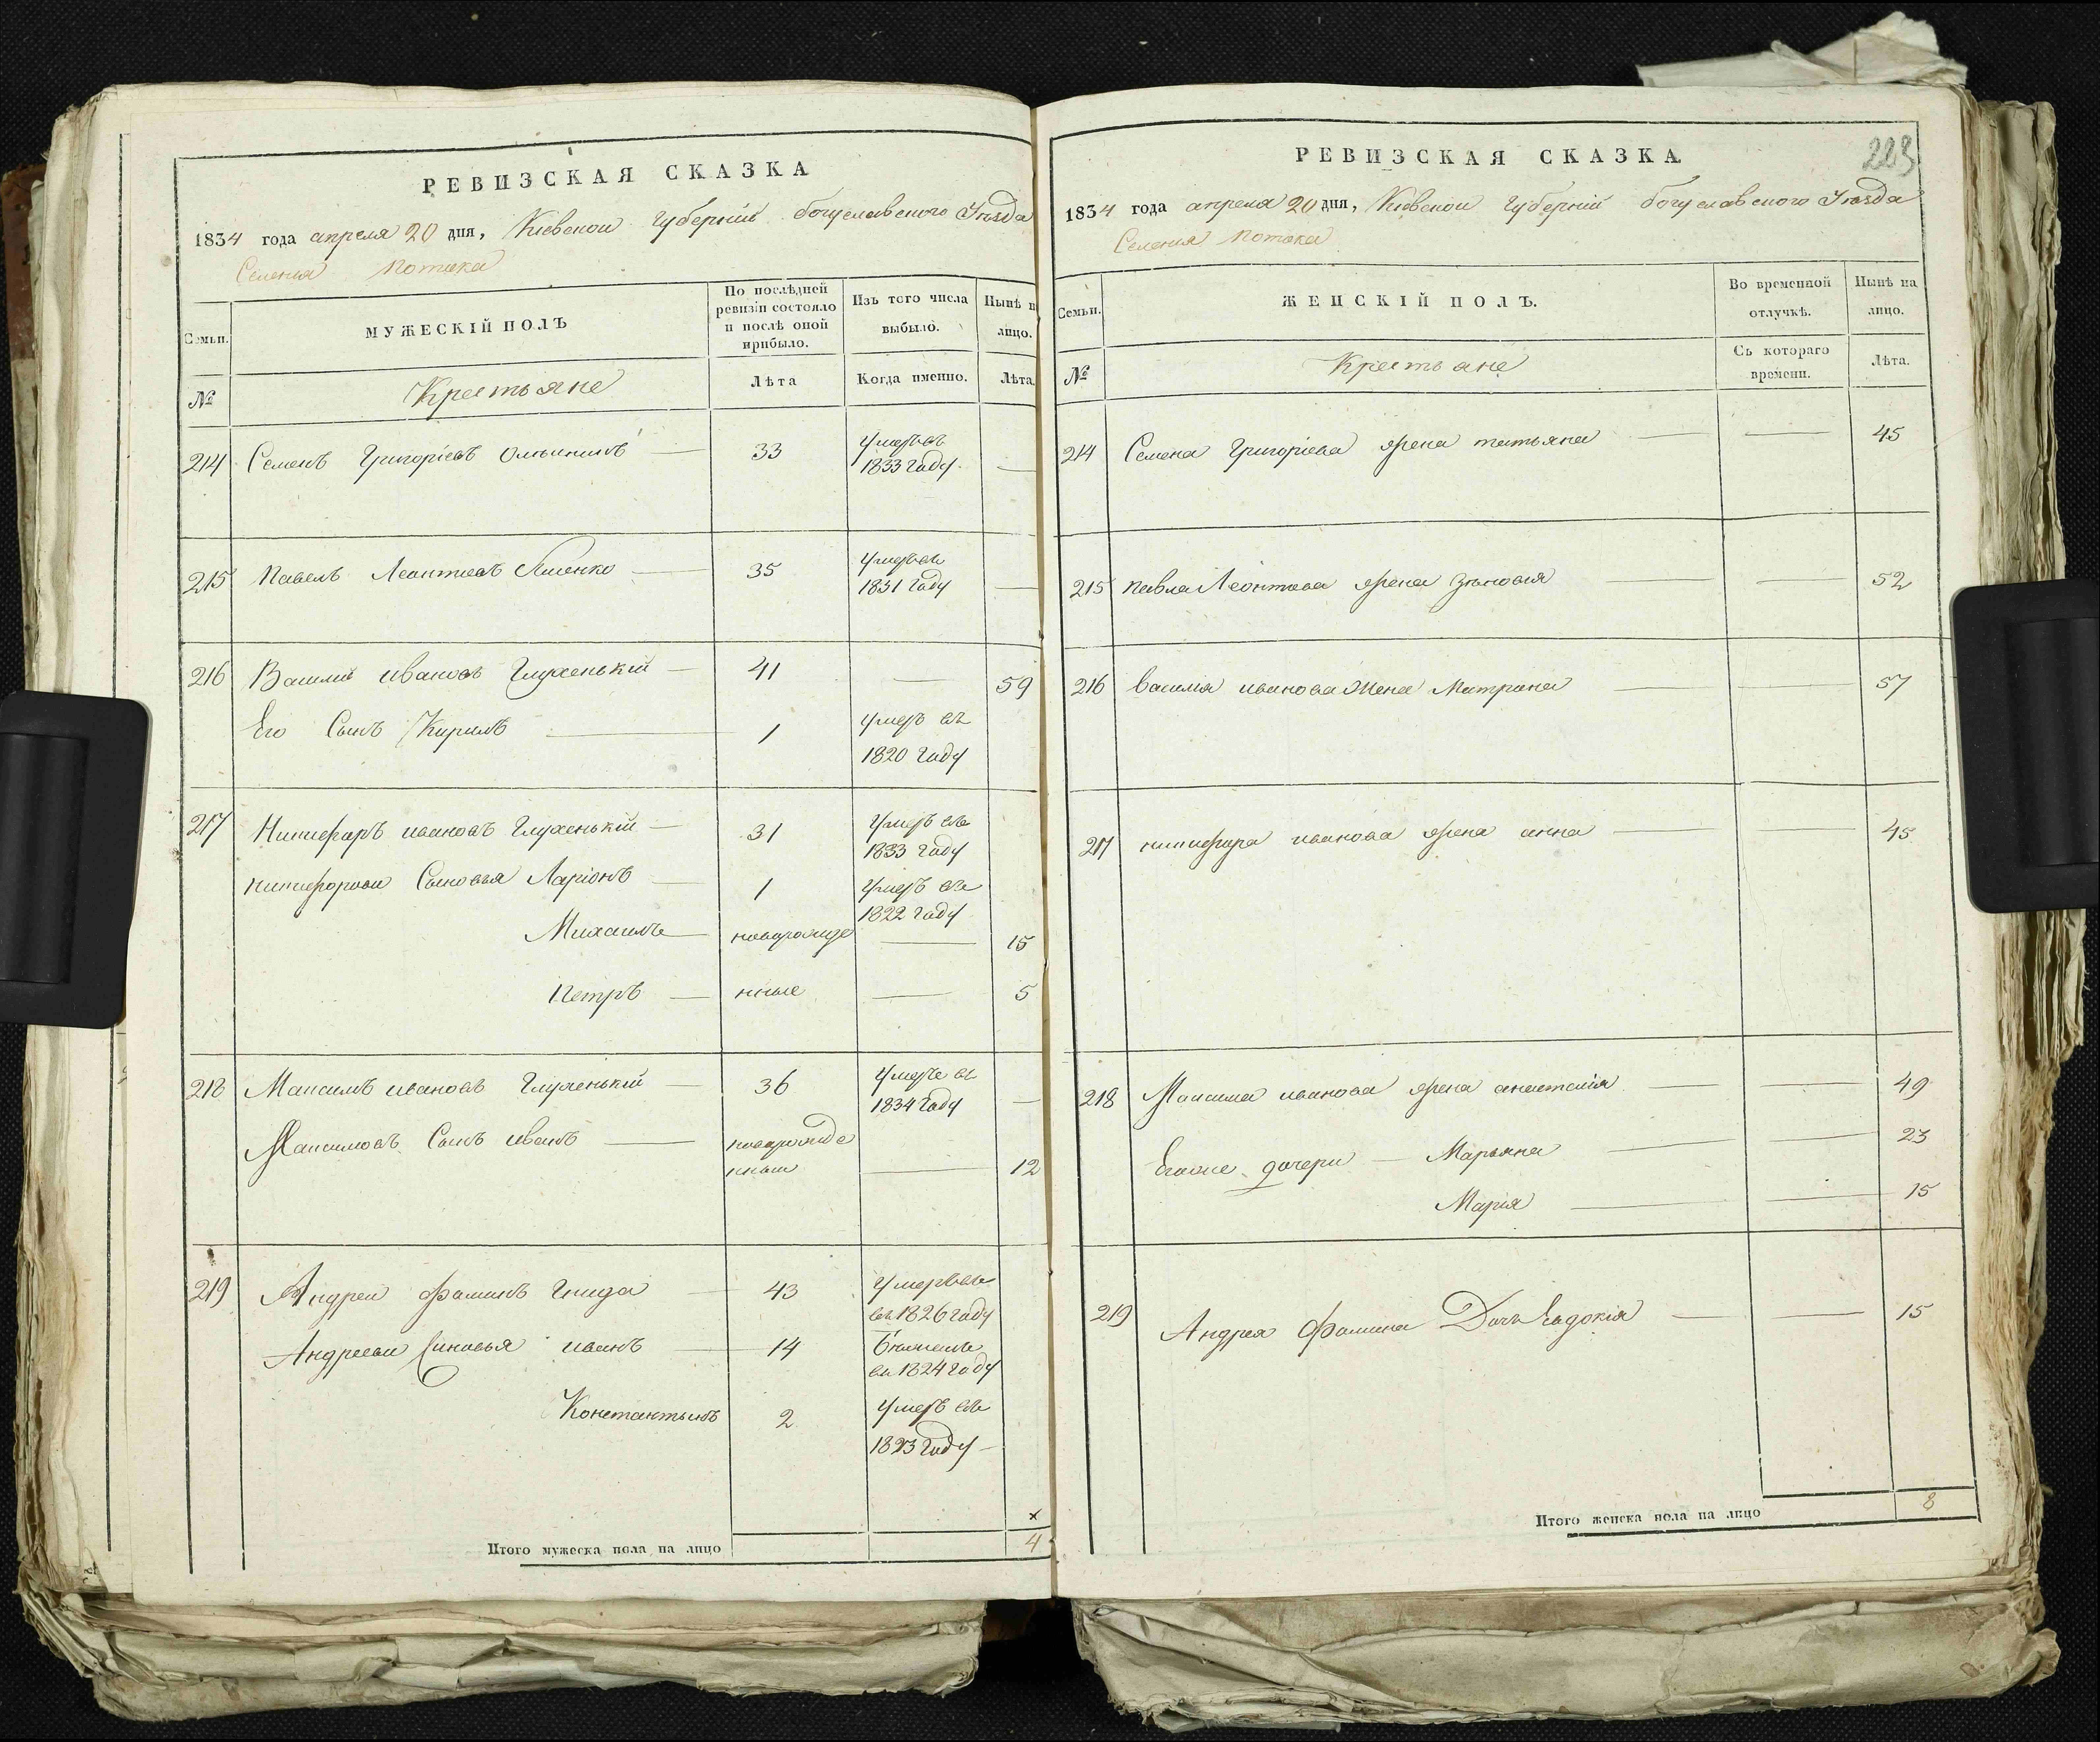 РЕВИЗСКАЯ СКАЗКА
1834 года апреля 20 дня, Киевской Губерніи богуславского Уезда
Селения Потока
Семьи. МУЖЕСКІЙ ПОЛЪ По послѣдней ревизіи состояло и послѣ оной прибыло. Изъ того числа выбыло. Нынѣ н лицо.
№ Крестьяне Лѣта Когда именно. Лѣта.
214 Семенъ Григоріевъ 33 Умеръ въ
1833 Году
215 Павелъ Леонтиевъ 35 Умеръ въ
1831 Году
216 Василий ивановъ Глухенький 41 59
Его Сынъ Кирилъ 1 Умеръ въ
1820 Году
217 Никифоръ ивановъ Глухенький 31 Умеръ въ
1833 Году
никифорови Сыновья Ларіонъ 1 Умеръ въ
1822 Году
Михаилъ новорожде 15
Петръ нные 5
218 Максимъ ивановъ Глухенький 36 Умеръ въ
1834 Году
Максимовъ Сынъ иванъ новорожде
нный 12
219 Андреи Фоминъ Гнида 43 Умеръ
въ 1826 Году
Андрееви Синовья иванъ 14
въ 1824 Году
Константынъ 2 Умеръ въ
1823 Году
x
Итого мужеска пола на лицо 4
223
РЕВИЗСКАЯ СКАЗКА
1834 года апреля 20 дня, Киевской Губерніи богуславского Уезда
Селения Потока
Семьи. ЖЕНСКІЙ ПОЛЪ. Во временной отлучкѣ. Нынѣ на лицо.
№ Крестьяне Съ котораго времени. Лѣта.
214 Семена Григоріева жена татьяна 45
215 павла Леонтиева жена Зѣновия 52
216 василия иванова Жена Матрина 57
217 никифора иванова жена анна 45
218 Максима иванова жена анастасія 49
Егоже дочери Марьяна 23
Марія 15
219 Андрея Фомина Дочь Евдокія 15
Итого женска пола на лицо 8